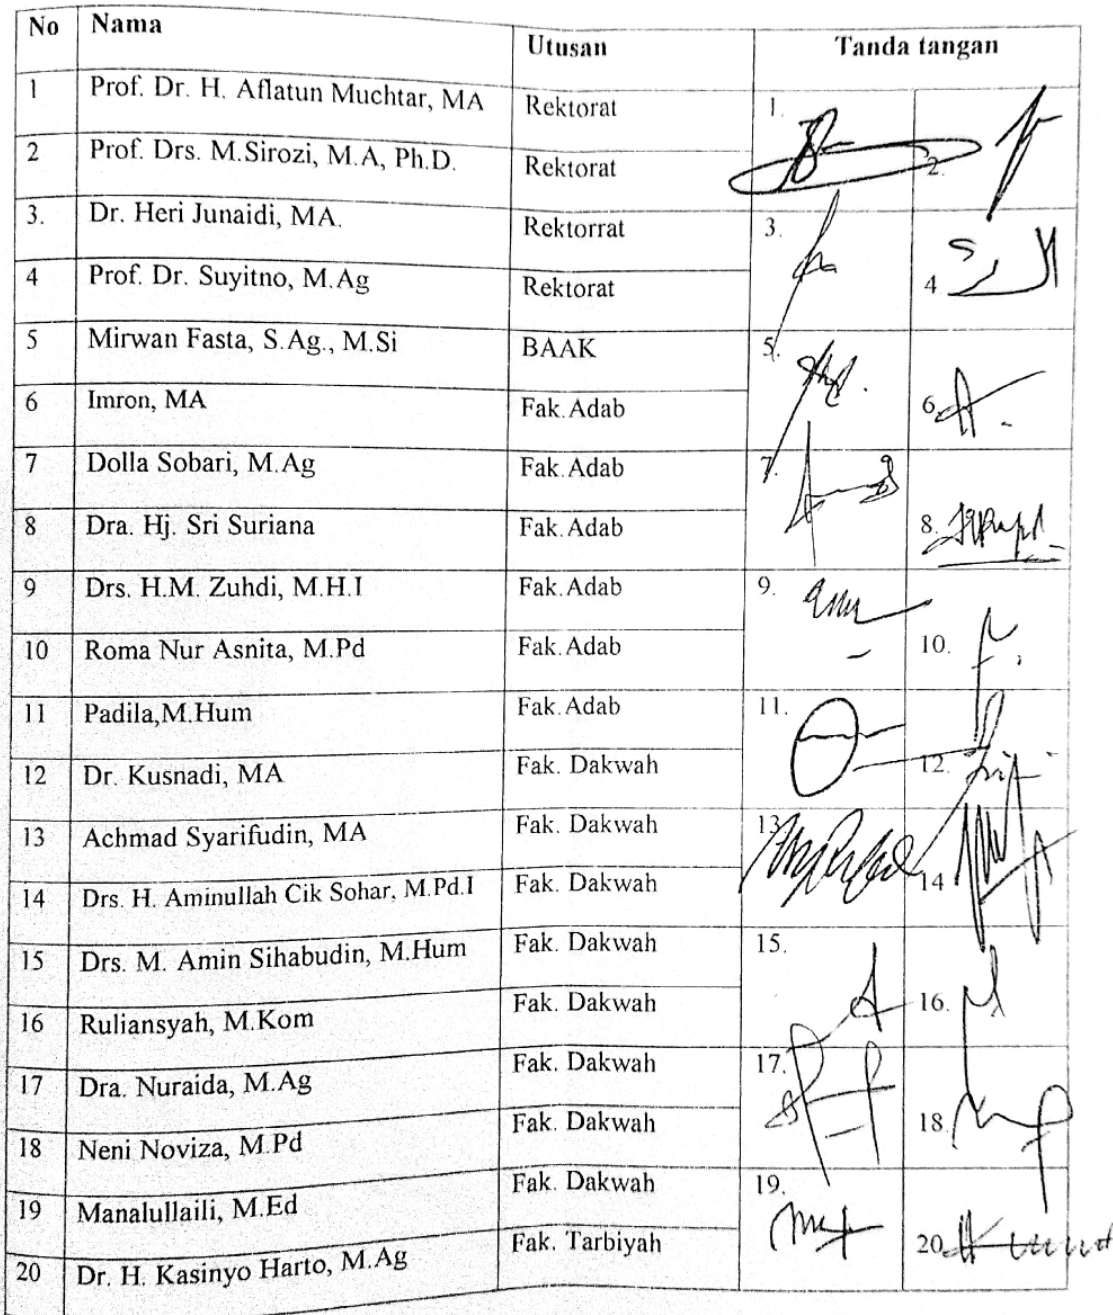 No Nama Utusan Tanda tangan
1 Prof. Dr. H. Aflatun Muchtar, MA Rektorat 1.
2 Prof. Drs. M.Sirozi, M.A, Ph.D. Rektorat 2.
3. Dr. Heri Junaidi, MA. Rektorrat 3.
4 Prof. Dr. Suyitno, M.Ag Rektorat 4
5 Mirwan Fasta, S.Ag., M.Si BAAK 5.
6 Imron, MA Fak.Adab 6.
7 Dolla Sobari, M.Ag Fak.Adab 7.
8 Dra. Hj. Sri Suriana Fak.Adab 8.
9 Drs. H.M. Zuhdi, M.H.I Fak.Adab 9.
10 Roma Nur Asnita, M.Pd Fak.Adab 10.
11 Padila,M.Hum Fak.Adab 11.
12 Dr. Kusnadi, MA Fak. Dakwah 12.
13 Achmad Syarifudin, MA Fak. Dakwah 13
14 Drs. H. Aminullah Cik Sohar, M.Pd.I Fak. Dakwah 14
15 Drs. M. Amin Sihabudin, M.Hum Fak. Dakwah 15.
16 Ruliansyah, M.Kom Fak. Dakwah 16.
17 Dra. Nuraida, M.Ag Fak. Dakwah 17.
18 Neni Noviza, M.Pd Fak. Dakwah 18.
19 Manalullaili, M.Ed Fak. Dakwah 19.
20 Dr. H. Kasinyo Harto, M.Ag Fak. Tarbiyah 20.